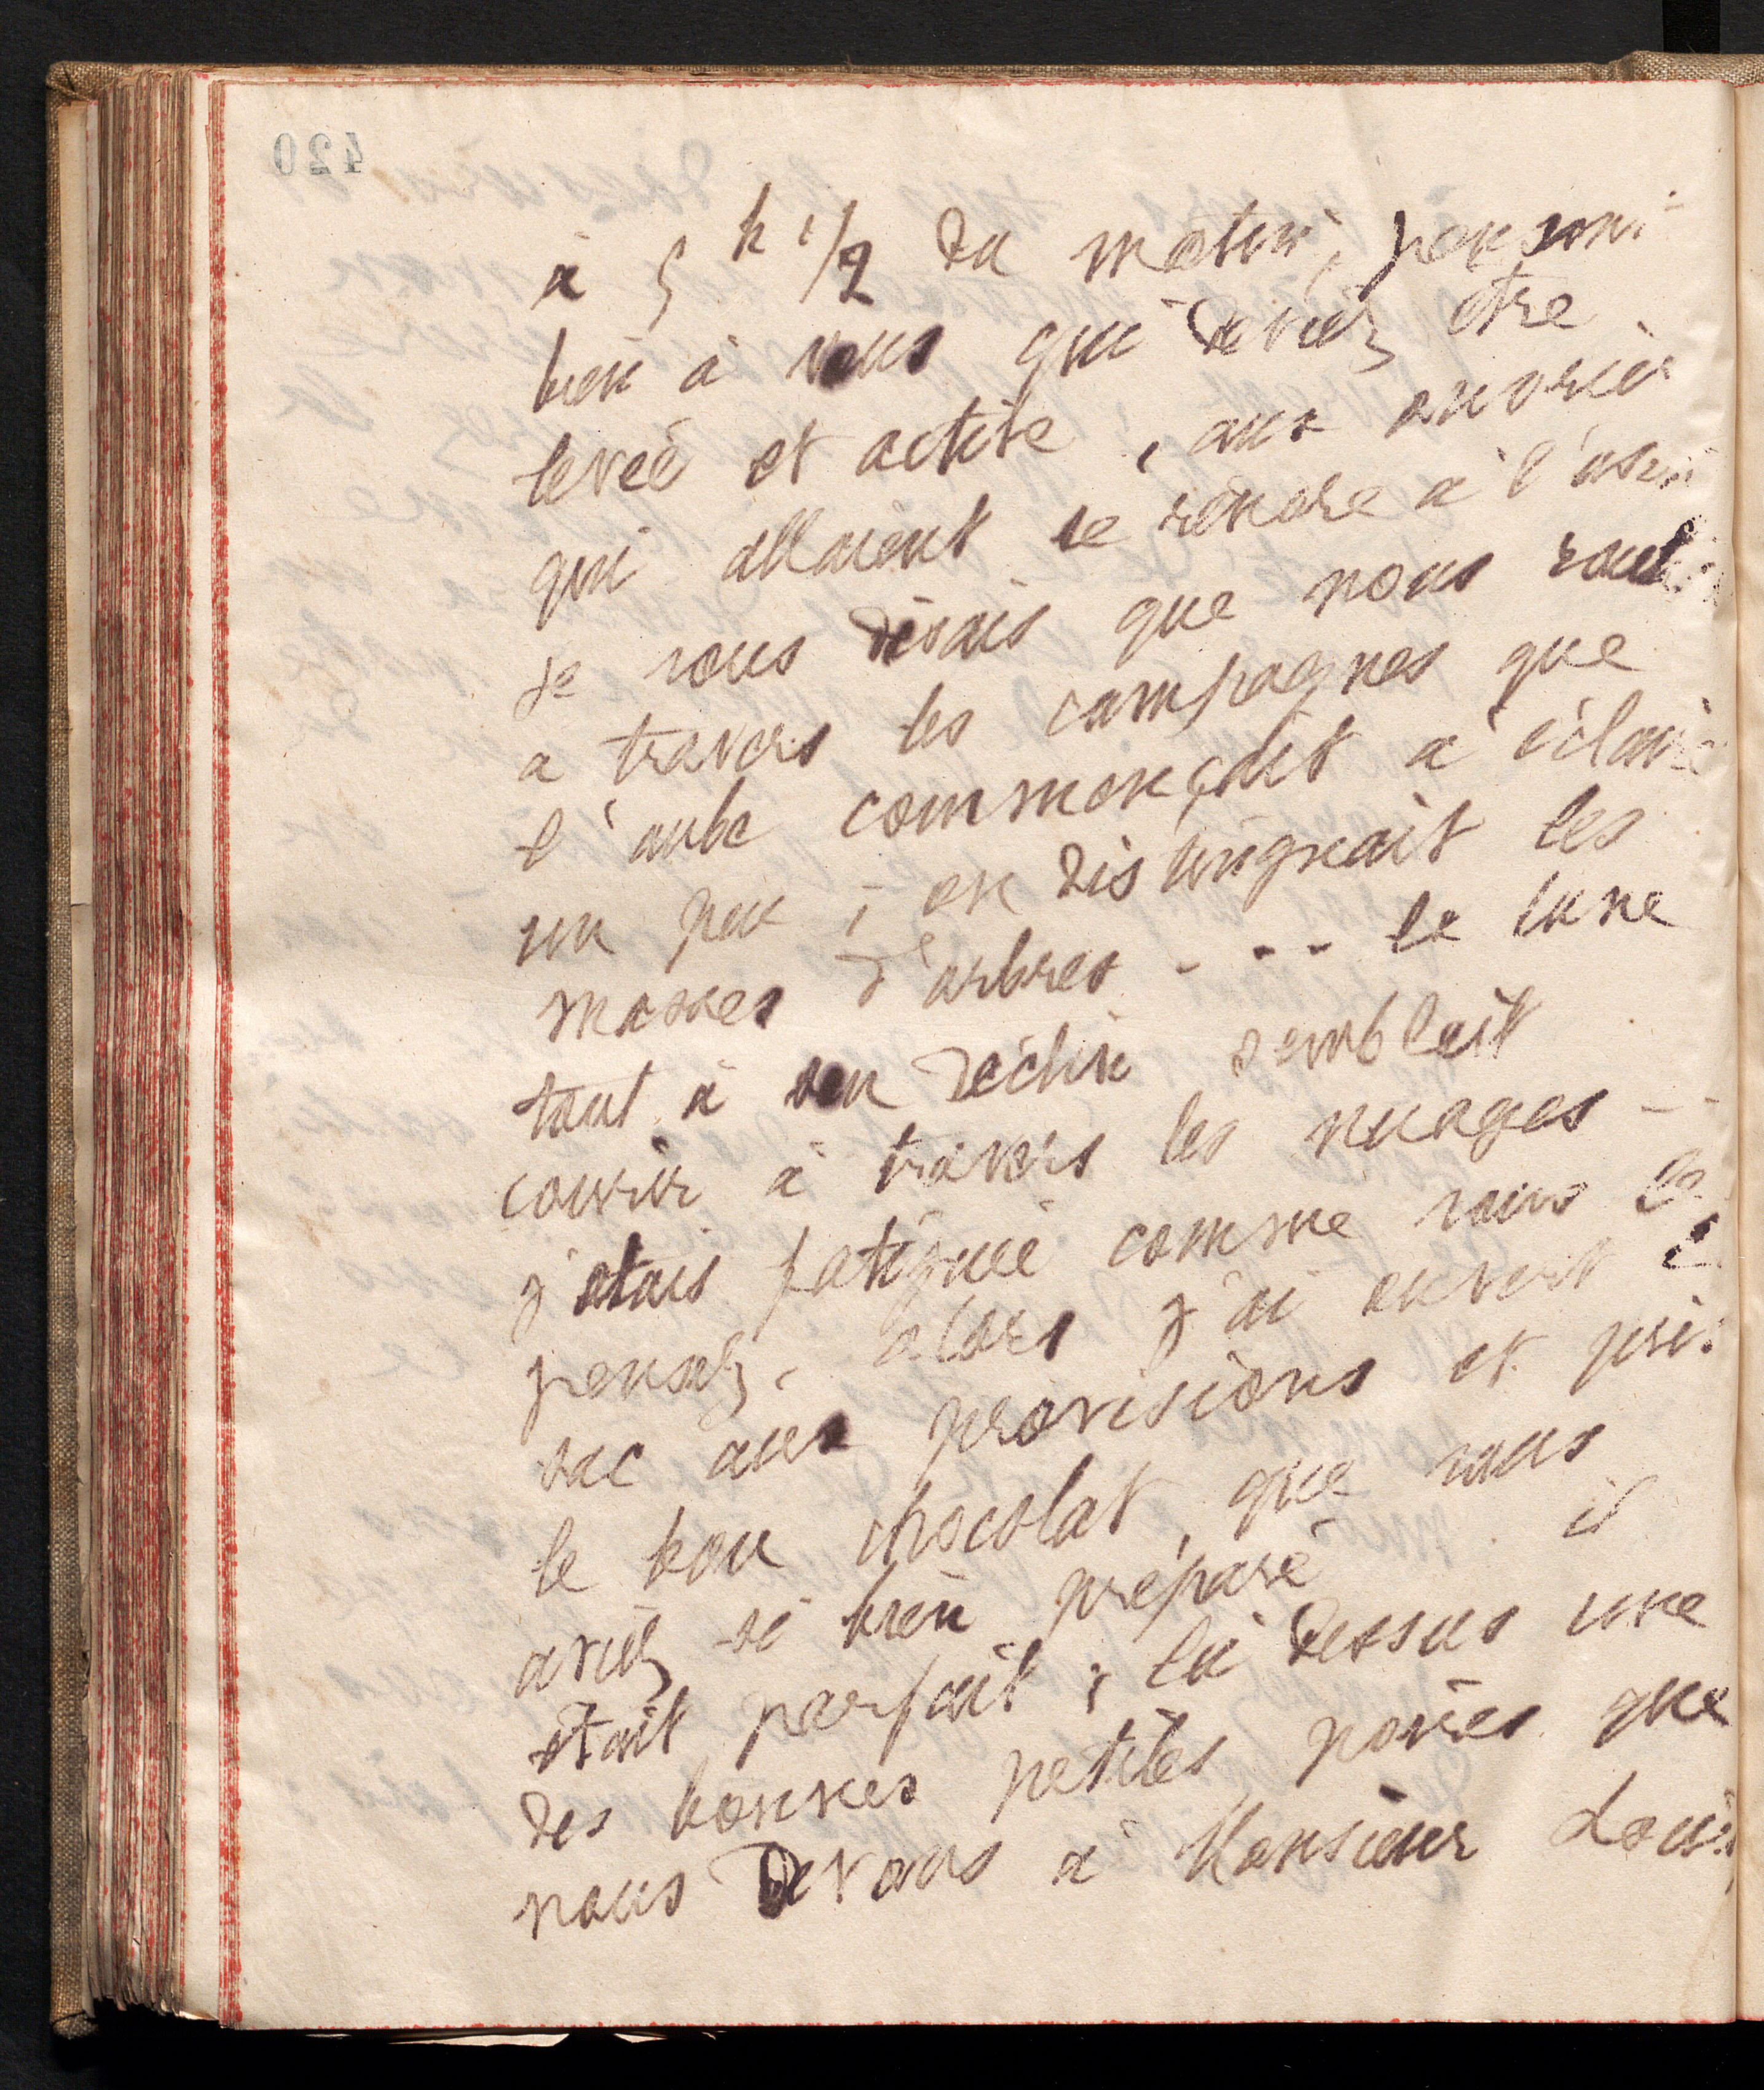 420
à 5 h 1/2 du matin, pensant
bien à vous qui deviez être
levée et active, aux ouvriers
qui allaient se rendre à l'usine
je vous disais que nous roulions
a travers les campagnes que
l'aube commençait à éclairer
un peu, on distinguait les
masses d'arbres - - - la lune
tout à son déclin semblait
courir à travers les nuages - -
j'étais fatiguée comme vous le
pensez, alors j'ai ouvert le
sac aux provisions et pris
le bon chocolat que vous
aviez si bien préparé il
était parfait, la dessus une
des bonnes petites poires que
nous devons à Monsieur Louis